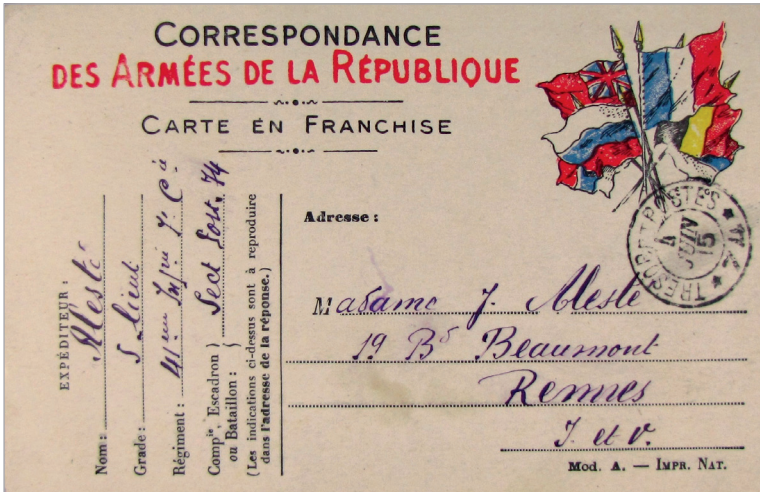 CORRESPONDANCE
DES ARMÉES DE LA RÉPUBLIQUE
CARTE EN FRANCHISE
EXPÉDITEUR :
Nom : Aleste
Grade : S Lieut
Régiment : 41em Infrie 7e Cie
Compie, Escadron }
ou Bataillon : } Sect Post. 74
(Les indications ci-dessus sont à reproduire
dans l'adresse de la réponse.)
Adresse :
TRESOR ET POSTES ★ 74 ★
4
JUIN
15
Madame J. Aleste
19 Bd Beaumont
Rennes
I. et V.
Mod. A. — IMPR. NAT.